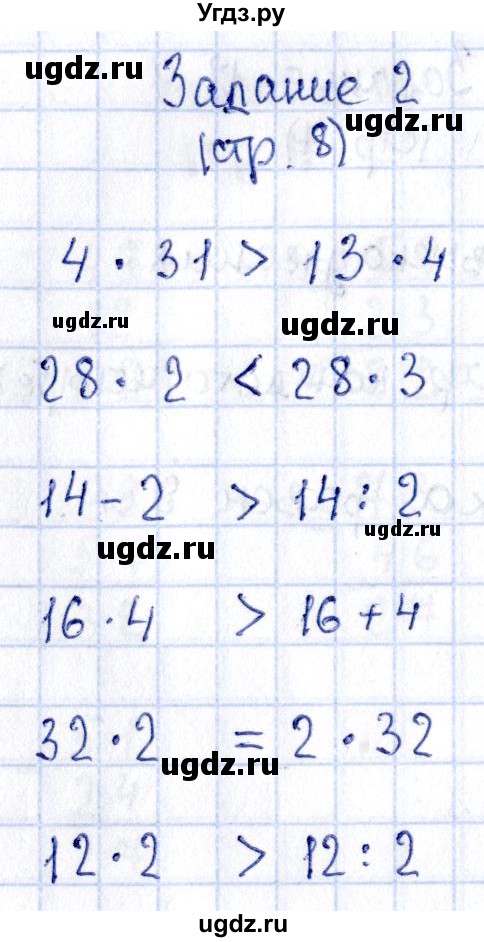 Угдз.ру
ugdz.ru
Задание 2
ugdz.ru
(стр. 8)
4 · 31 > 13 · 4
ugdz.ru ugdz.ru
28 · 2 < 28 · 3
14 - 2 > 14 : 2
ugdz.ru ugdz.ru
16 · 4 > 16 + 4
32 · 2 = 2 · 32
ugdz.ru
12 · 2 > 12 : 2
Угдз.ру